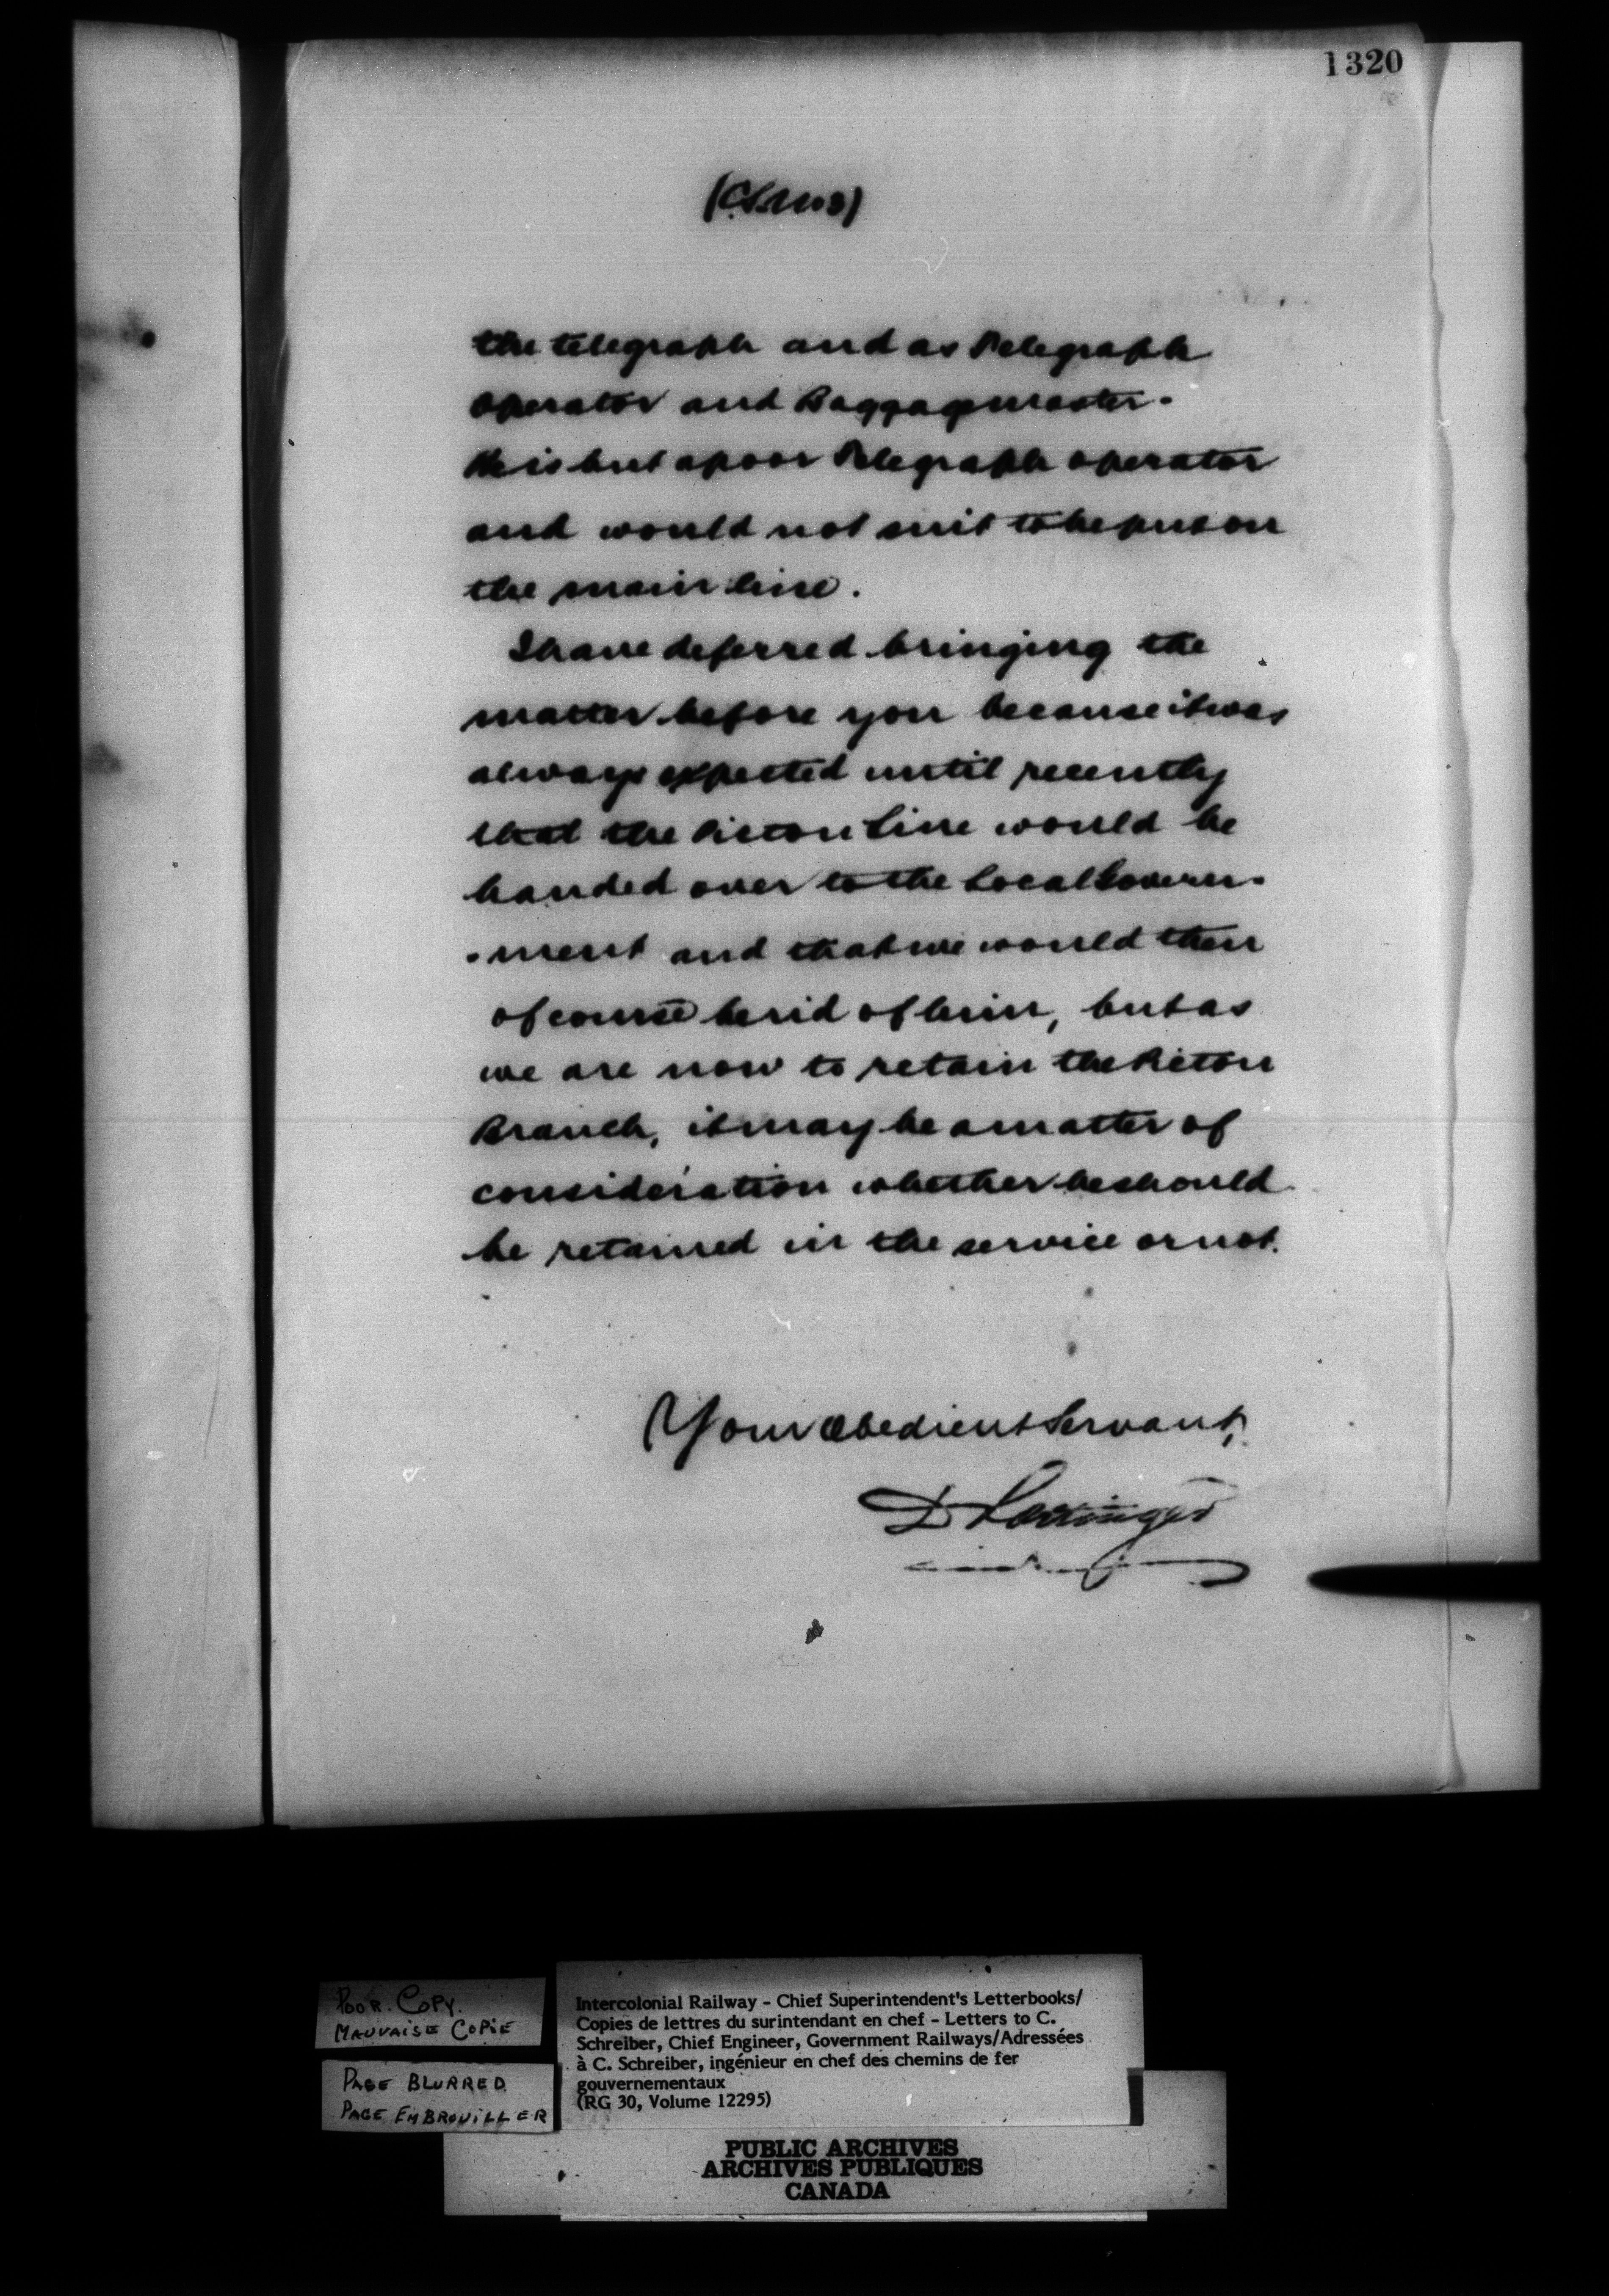 1320
the telegraph and as Telegraph
operator and Baggagemaster.
He is but a poor Telegraph operator
and would not suit to be put on
the main line.
I have deferred bringing the
matter before you because it was
always expected until recently
that the Pictou Line would be
handed over to the Local Govern-
-ment and that we would then
of course be rid of him, but as
we are now to retain the Pictou
Branch, it may be a matter of
consideration whether he should
be retained in the service or not.
Your Obedient Servant,
D Pottinger
POOR COPY.
MAUVAISE COPIE
PAGE BLURRED
PAGE EMBROUILLER
Intercolonial Railway - Chief Superintendent's Letterbooks/
Copies de lettres du surintendant en chef - Letters to C.
Schreiber, Chief Engineer, Government Railways/Adressées
à C. Schreiber, ingénieur en chef des chemins de fer
gouvernementaux
(RG 30, Volume 12295)
PUBLIC ARCHIVES
ARCHIVES PUBLIQUES
CANADA